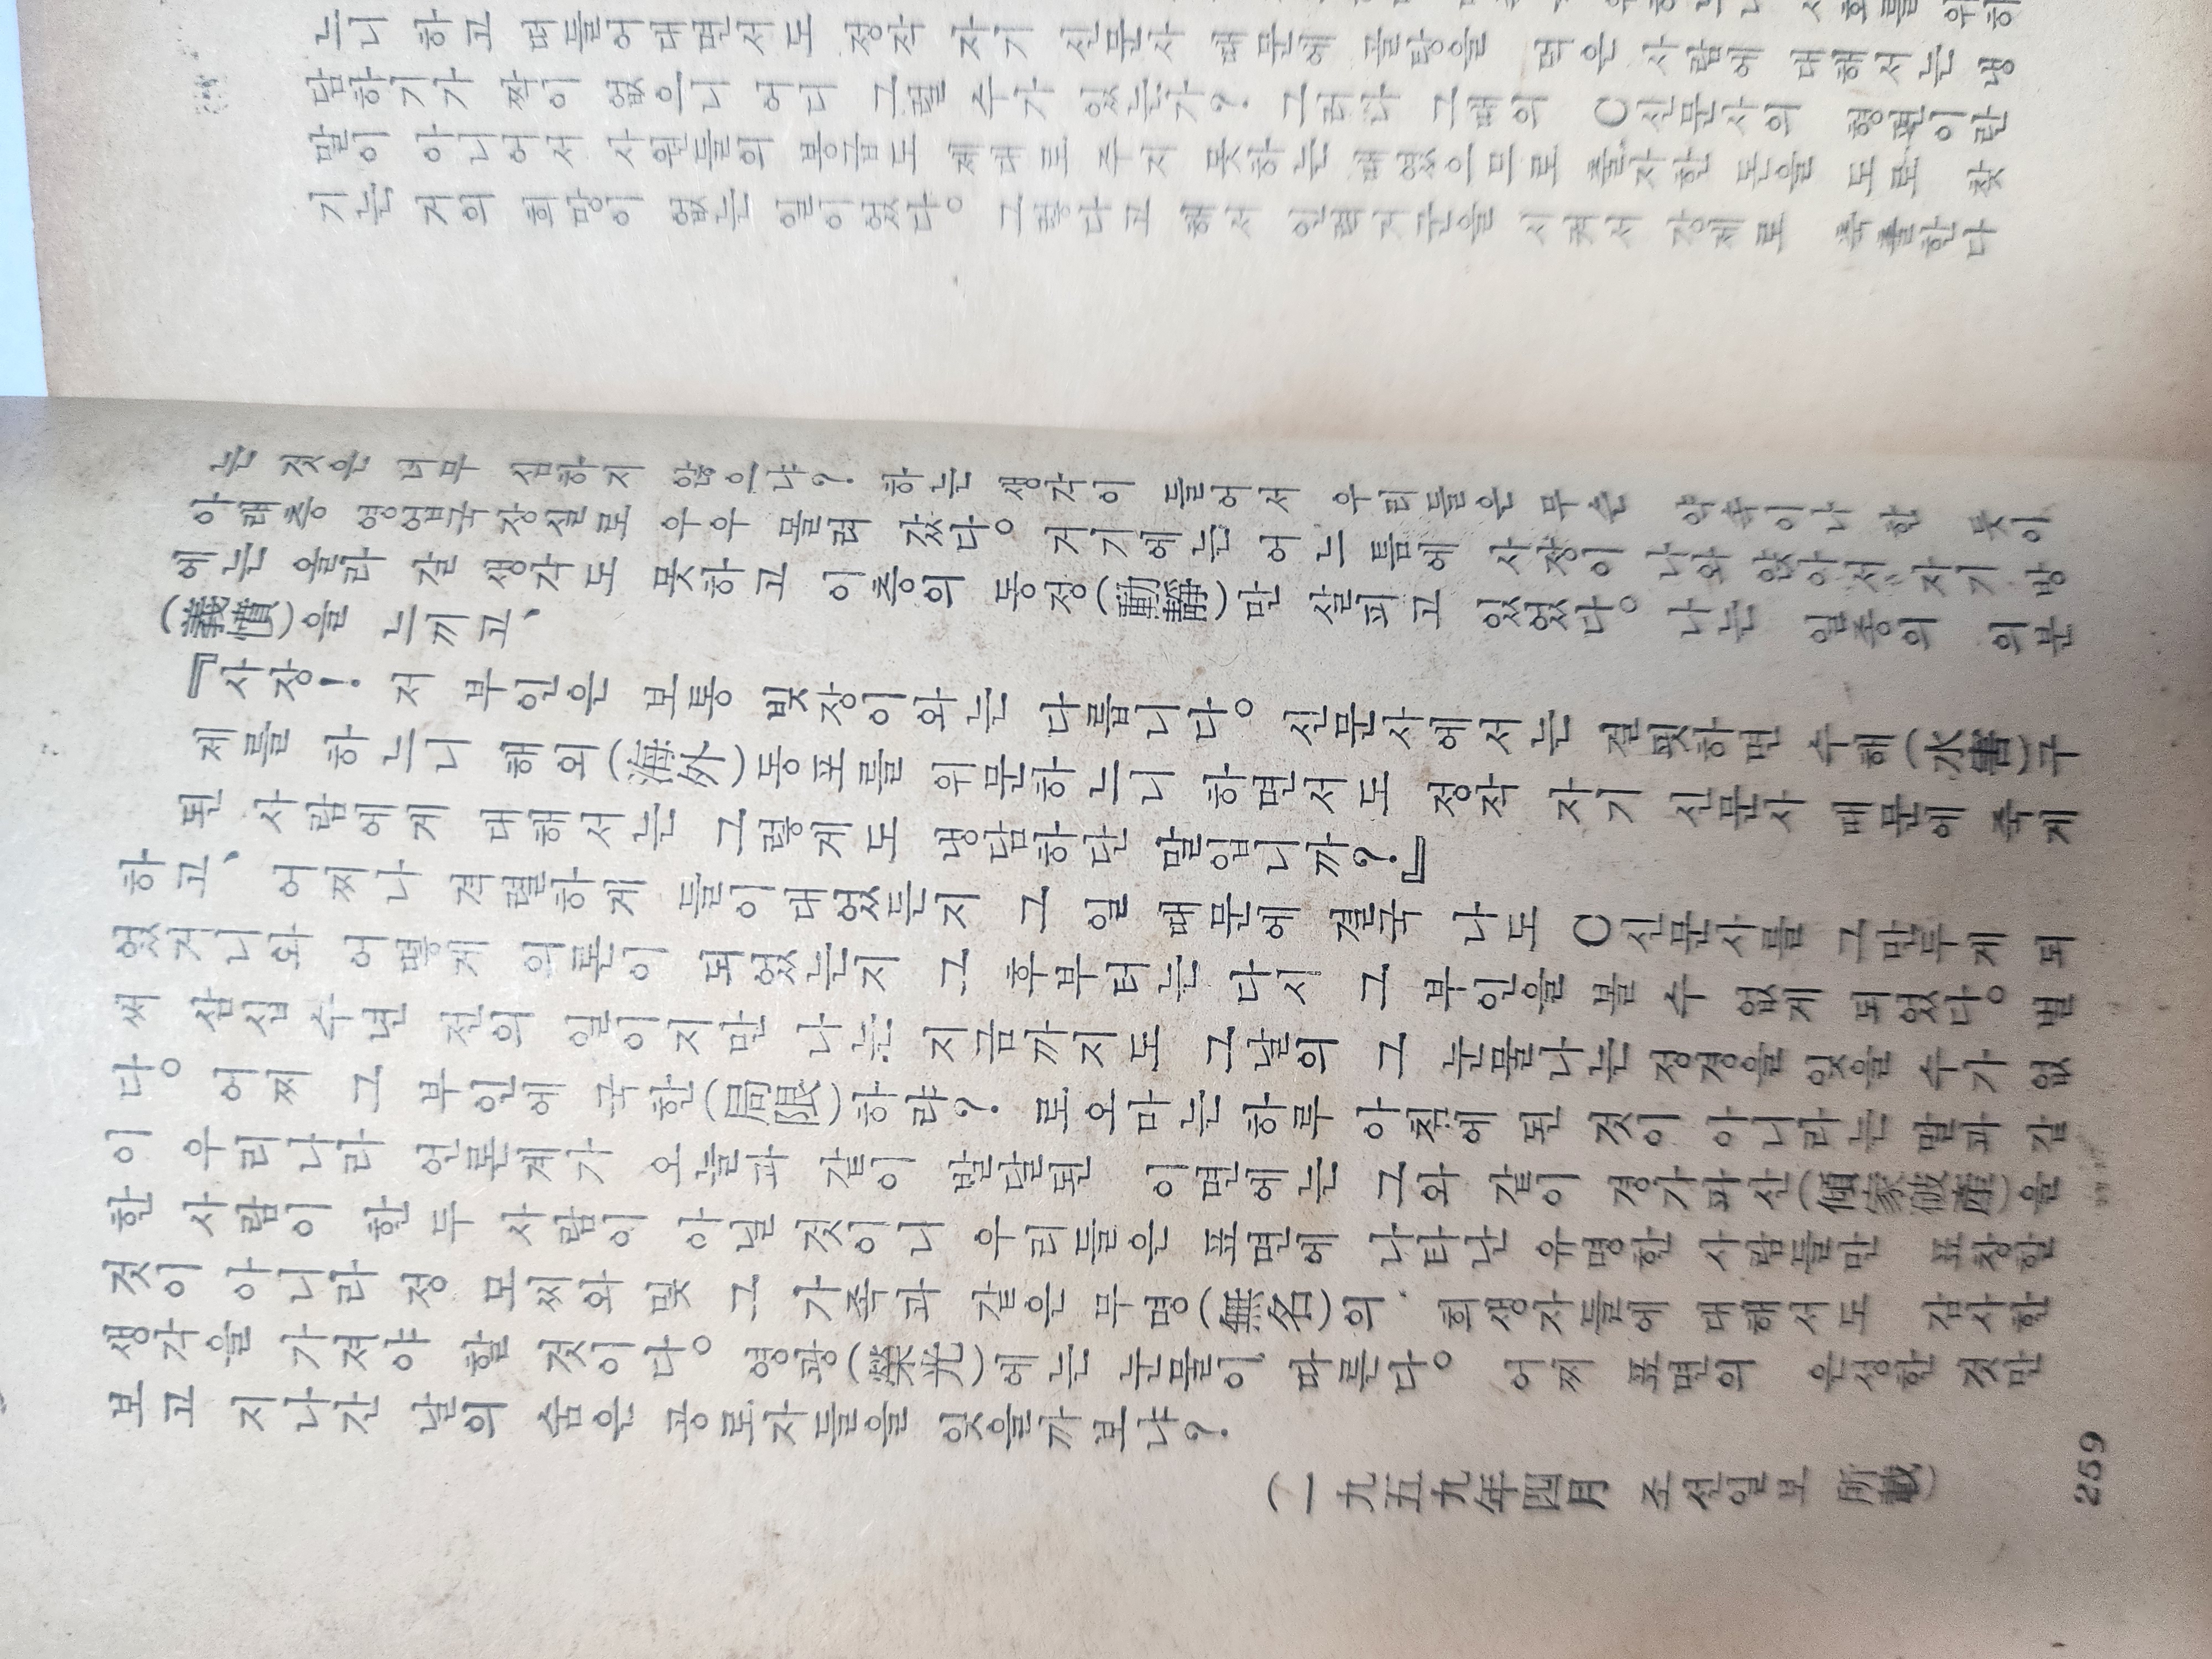 느니 하고 떠들어대면서도 정작 자기 신문사 때문에 골탕을 먹은 사람에 대해서는 냉
담하기가 짝이 없으니 어디 그럴 수가 있는가? 그러나 그때의 C신문사의 형편이란
말이 아니어서 사원들의 봉급도 제대로 주지 못하는 때였으므로 출자한 돈을 도로 찾
기는 거의 희망이 없는 일이었다。 그렇다고 해서 인력거꾼을 시켜서 강제로 축출한다
는 것은 너무 심하지 않으냐? 하는 생각이 들어서 우리들은 무슨 약속이나 한 듯이
아래층 영업국장실로 우우 몰려 갔다。 거기에는 어느 틈에 사장이 나와 앉아서 자기 방
에는 올라 갈 생각도 못하고 이층의 동정(動靜)만 살피고 있었다。 나는 일종의 의분
(義憤)을 느끼고、
『사장! 저 부인은 보통 빚장이와는 다릅니다。 신문사에서는 걸핏하면 수해(水害)구
제를 하느니 해외(海外)동포를 위문하느니 하면서도 정작 자기 신문사 때문에 죽게
된 사람에게 대해서는 그렇게도 냉담하단 말입니까?』
하고、 어찌나 격렬하게 들이대었든지 그 일 때문에 결국 나도 C신문사를 그만두게 되
었거니와 어떻게 의론이 되었는지 그 후부터는 다시 그 부인을 볼 수 없게 되었다。 벌
써 삼십 수년 전의 일이지만 나는 지금까지도 그날의 그 눈물나는 정경을 잊을 수가 없
다。 어찌 그 부인에 국한(局限)하랴? 로오마는 하루 아침에 된 것이 아니라는 말과 같
이 우리나라 언론계가 오늘과 같이 발달된 이면에는 그와 같이 경가파산(傾家破産)을
한 사람이 한 두 사람이 아닐 것이니 우리들은 표면에 나타난 유명한 사람들만 표창할
것이 아니라 정 모씨와 및 그 가족과 같은 무명(無名)의 희생자들에 대해서도 감사한
생각을 가져야 할 것이다。 영광(榮光)에는 눈물이 따른다。 어찌 표면의 은성한 것만
보고 지나간 날의 숨은 공로자들을 잊을까보냐?
(一九五九年四月 조선일보 所載)
259